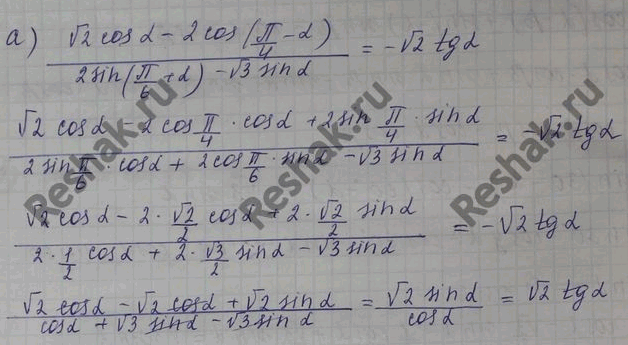 а) (√2 cosα − 2 cos(π/4 − α)) / (2 sin(π/6 + α) − √3 sinα) = −√2 tgα
(√2 cosα − 2 cos π/4 · cosα + 2 sin π/4 · sinα) / (2 sin π/6 · cosα + 2 cos π/6 · sinα − √3 sinα) = −√2 tgα
(√2 cosα − 2 · √2/2 cosα + 2 · √2/2 sinα) / (2 · 1/2 cosα + 2 · √3/2 sinα − √3 sinα) = −√2 tgα
(√2 cosα − √2 cosα + √2 sinα) / (cosα + √3 sinα − √3 sinα) = √2 sinα / cosα = √2 tgα
Reshak.ru
Reshak.ru
Reshak.ru